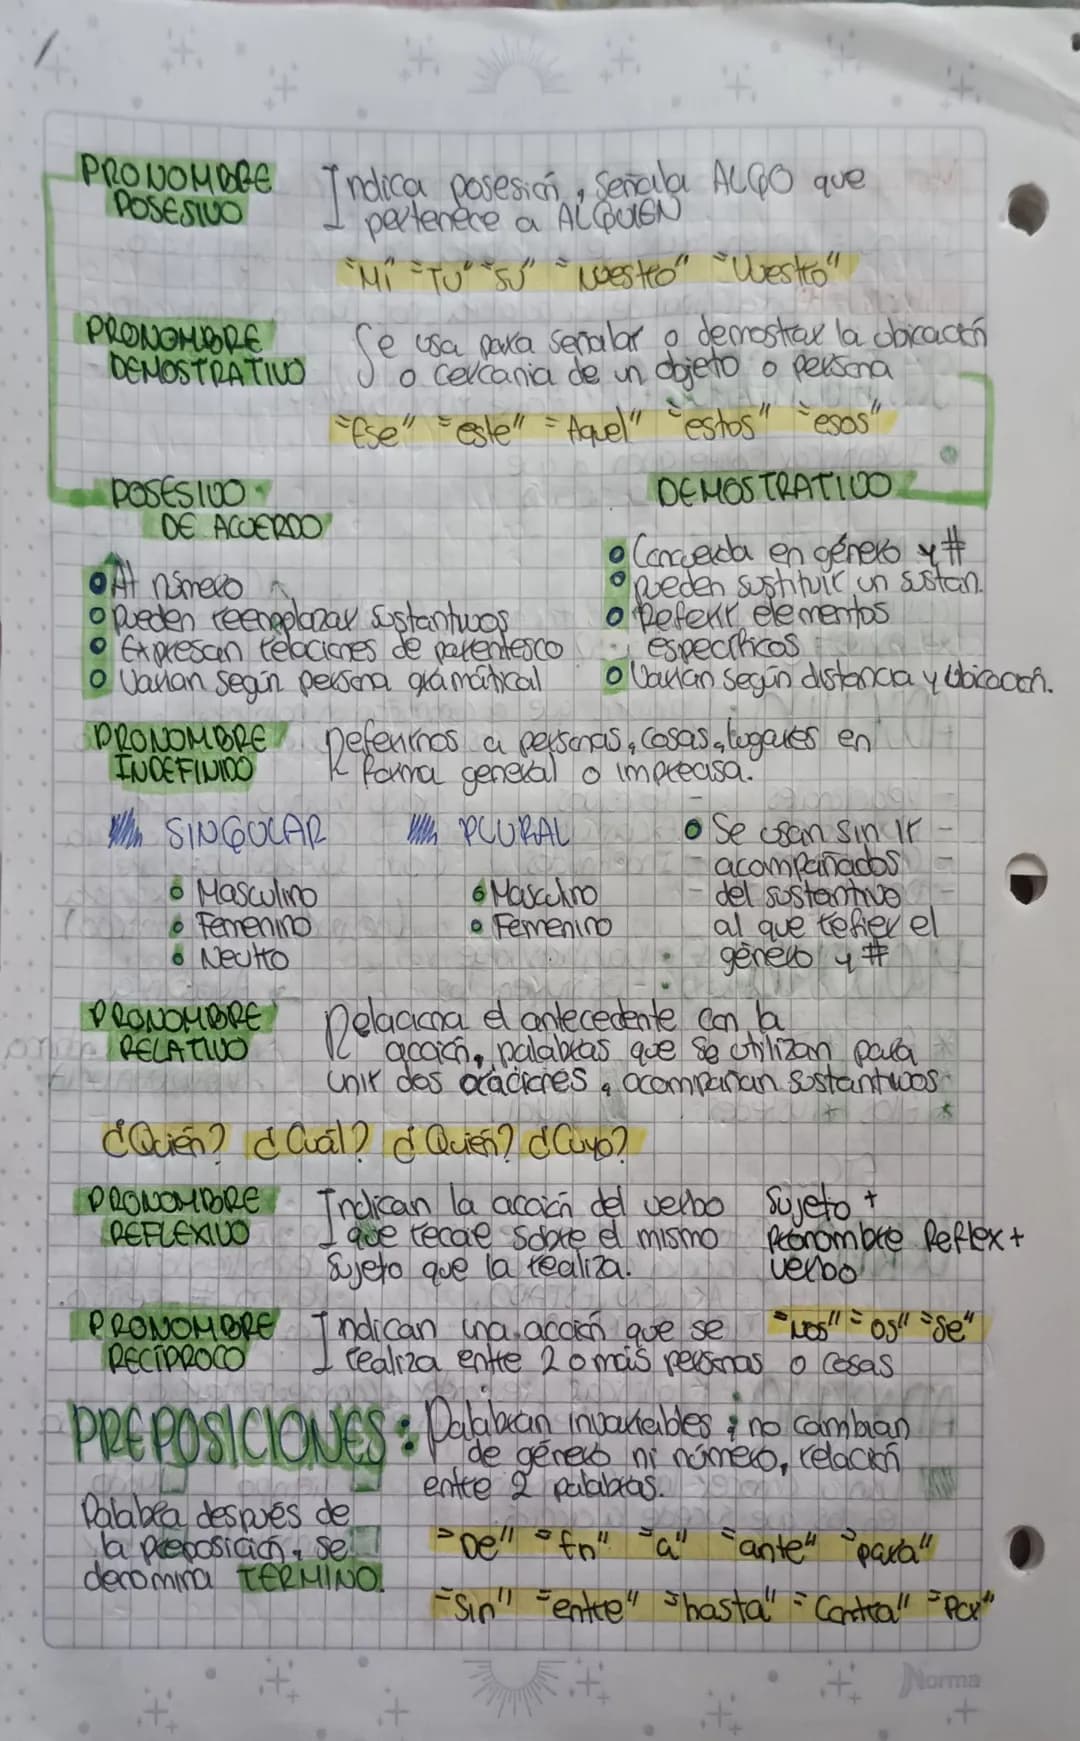 PRONOMBRE POSESIVO
Indica posesión, señala ALGO que
pertenece a ALGUIEN
"Mi" "TU" "SU" "Nuestro" "Vuestro"
PRONOMBRE DEMOSTRATIVO
Se usa para señalar o demostrar la ubicación
o cercania de un objeto o persona
"Ese" "este" "Aquel" "estos" "esos"
POSESIVO
DE ACUERDO
Al número
Pueden reemplazar sustantivos
Expresan relaciones de parentesco
Varian según persona gramátical
DEMOSTRATIVO
Concuerda en género y #
pueden sustituir un sustan.
Referir elementos
específicos
Varian según distancia y Ubicación.
PRONOMBRE INDEFINIDO
Referirnos a personas, cosas, lugares en
forma general o imprecisa.
SINGULAR
Masculino
Femenino
Neutro
PLURAL
Masculino
Femenino
Se usan sin ir
acompañados
del sustantivo
al que refier el
género y #
PRONOMBRE RELATIVO
Relaciona el antecedente con la
acción, palabras que se utilizan para
unir dos oraciones, acompañan sustantivos
¿Quién? ¿Cuál? ¿Quién? ¿Cuyo?
PRONOMBRE REFLEXIVO
Indican la acción del verbo
que recae sobre el mismo
sujeto que la realiza.
Sujeto +
Pronombre Reflex +
verbo
PRONOMBRE RECÍPROCO
Indican una acción que se
realiza entre 2 o más personas o cosas
"Nos" "os" "Se"
PREPOSICIONES:
Palabran invariables ; no cambian
de género ni número, relación
entre 2 palabras.
Palabra después de
la preposición, se
denomina TERMINO.
"De" "En" "a" "ante" "para"
"Sin" "entre" "hasta" "Contra" "Por"
Norma